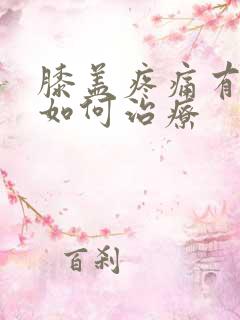 膝盖疼痛有
如何治疗
百刹